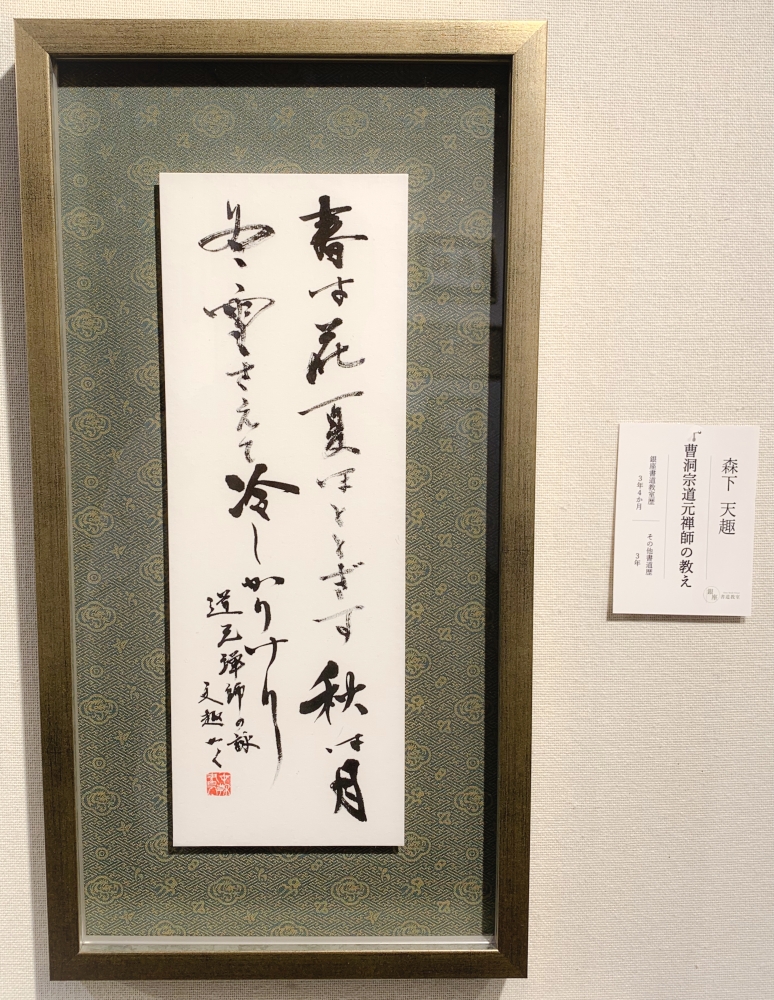 春は花夏ほとゝぎす秋は月
冬雪さえて冷しかりけり
道元禅師の詠
天趣かく
森下 天趣
曹洞宗道元禅師の教え
銀座書道教室歴
3年4か月
その他書道歴
3年
銀座
書道教室